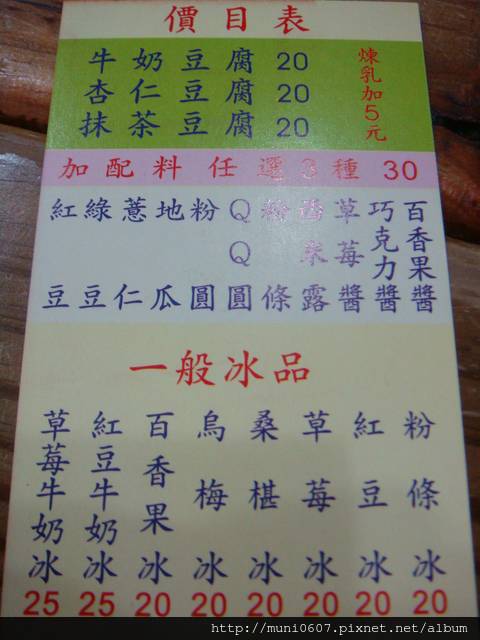 價目表
牛奶豆腐 20
杏仁豆腐 20
抹茶豆腐 20
煉乳加5元
加配料任選3種 30
紅豆
綠豆
薏仁
地瓜
粉圓
QQ圓
粉條
西米露
草莓醬
巧克力醬
百香果醬
一般冰品
草莓牛奶冰 25
紅豆牛奶冰 25
百香果冰 20
烏梅冰 20
桑椹冰 20
草莓冰 20
紅豆冰 20
粉條冰 20
http://muni0607.pixnet.net/album